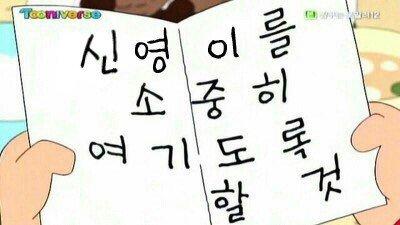 Tooniverse
신영이를
소중히
여기도록
할것